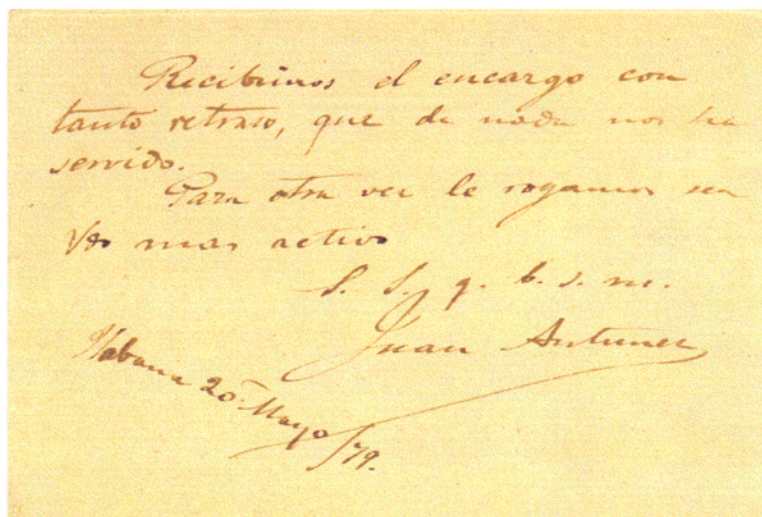 Recibimos el encargo con
tanto retraso, que de nada nos ha
servido.
Para otra vez le rogamos sea
Vd mas activo
S. S. q. b. s. m.
Juan Antunez
Habana 20 Mayo/79.